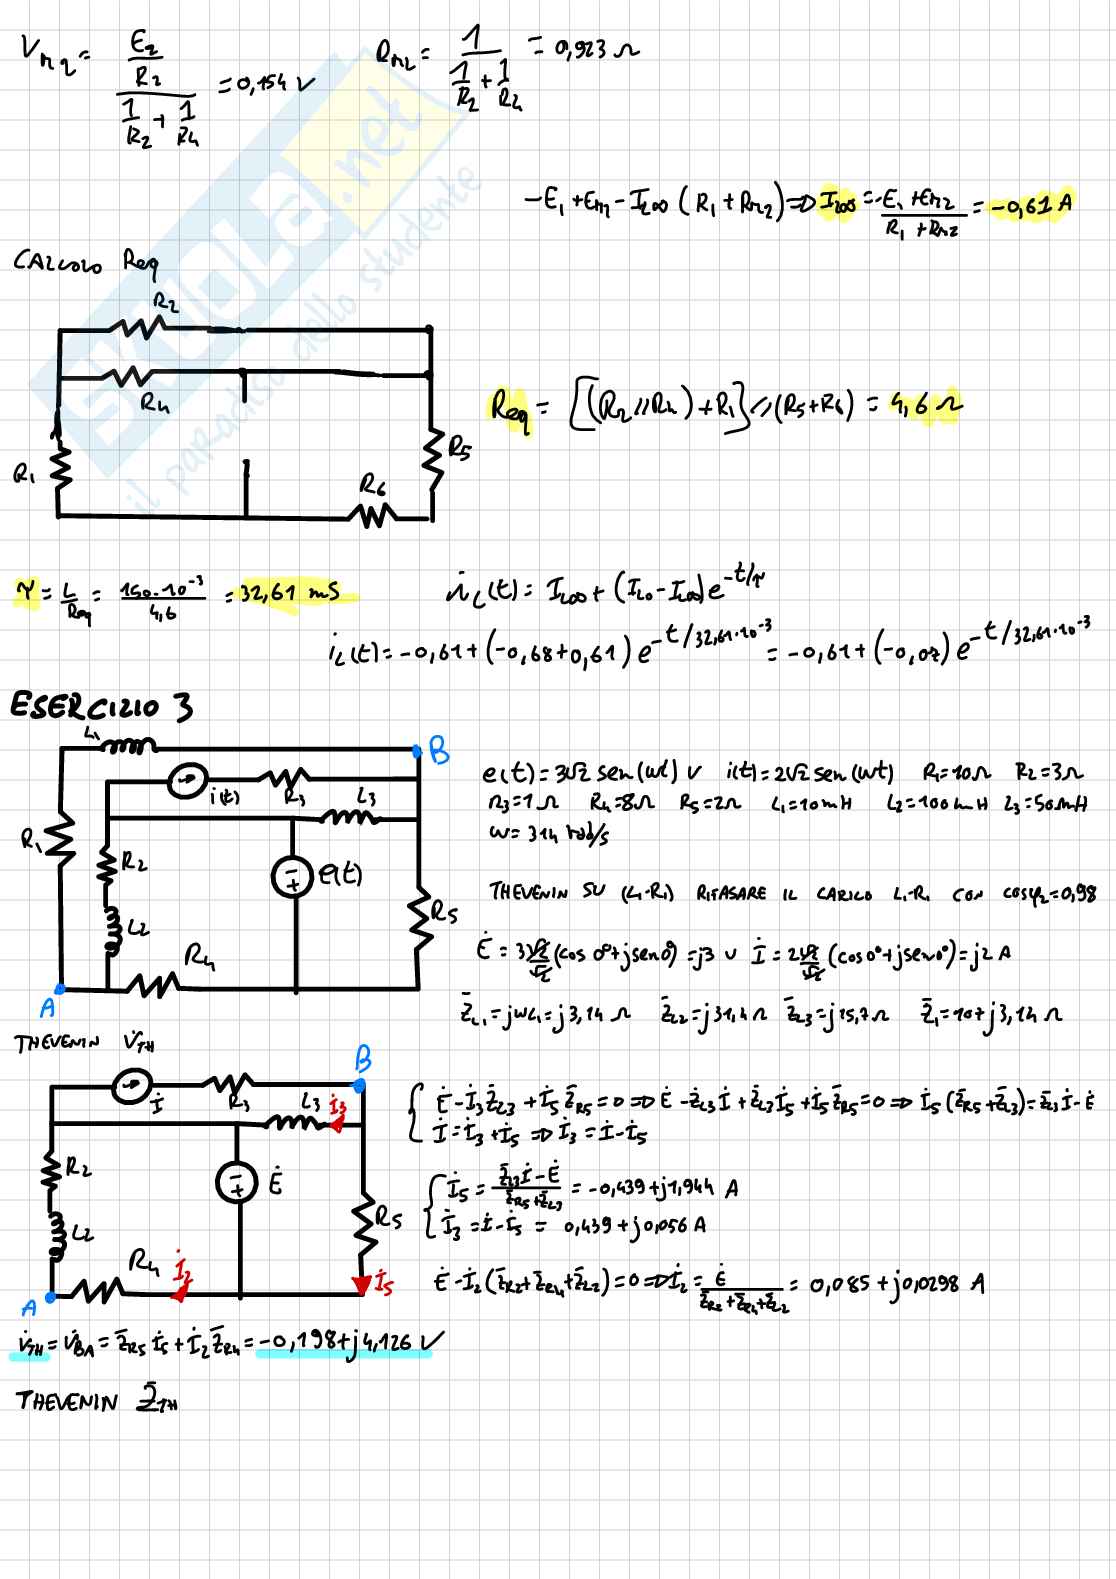 V_{m2} = \frac{\frac{E_2}{R_2}}{\frac{1}{R_2} + \frac{1}{R_4}} = 0,154 V
R_{m2} = \frac{1}{\frac{1}{R_2} + \frac{1}{R_4}} = 0,923 Ω
-E_1 + E_{m2} - I_{L∞} (R_1 + R_{m2}) => I_{L∞} = \frac{-E_1 + E_{m2}}{R_1 + R_{m2}} = -0,61 A
CALCOLO Req
R_2
R_4
R_1
R_5
R_6
Req = [(R_2 // R_4) + R_1] // (R_5 + R_6) = 4,6 Ω
τ = \frac{L}{Req} = \frac{150·10^{-3}}{4,6} = 32,61 mS
i_L(t) = I_{L∞} + (I_{L0} - I_{L∞}) e^{-t/τ}
i_L(t) = -0,61 + (-0,68 + 0,61) e^{-t/32,61·10^{-3}} = -0,61 + (-0,07) e^{-t/32,61·10^{-3}}
ESERCIZIO 3
L_1
B
i(t)
R_3
L_3
R_1
R_2
e(t)
L_2
R_5
R_4
A
e(t) = 3√2 sen(wt) V i(t) = 2√2 sen(wt) R_1 = 10Ω R_2 = 3Ω
R_3 = 1Ω R_4 = 8Ω R_5 = 2Ω L_1 = 10mH L_2 = 100mH L_3 = 50mH
w = 314 rad/s
THEVENIN SU (L_1-R_1) RIFASARE IL CARICO L_1-R_1 CON cosφ_2 = 0,98
Ė = 3\frac{√2}{√2} (cos 0° + jsen0°) = j3 V İ = 2\frac{√2}{√2} (cos0° + jsen0°) = j2 A
Z̄_{L1} = jwL_1 = j3,14 Ω Z̄_{L2} = j31,4 Ω Z̄_{L3} = j15,7 Ω Z̄_1 = 10 + j3,14 Ω
THEVENIN V̇_{TH}
B
İ
R_3
L_3
İ_3
R_2
Ė
L_2
R_5
R_4
İ_2
İ_5
A
Ė - İ_3 Z̄_{L3} + İ_5 Z̄_{R5} = 0 => Ė - Z̄_{L3} İ + Z̄_{L3} İ_5 + İ_5 Z̄_{R5} = 0 => İ_5 (Z̄_{R5} + Z̄_{L3}) = Z̄_{L3} İ - Ė
İ = İ_3 + İ_5 => İ_3 = İ - İ_5
İ_5 = \frac{Z̄_{L3} İ - Ė}{Z̄_{R5} + Z̄_{L3}} = -0,439 + j1,944 A
İ_3 = İ - İ_5 = 0,439 + j0,056 A
Ė - İ_2 (Z̄_{R2} + Z̄_{R4} + Z̄_{L2}) = 0 => İ_2 = \frac{Ė}{Z̄_{R2} + Z̄_{R4} + Z̄_{L2}} = 0,085 + j0,0298 A
V̇_{TH} = V̇_{BA} = Z̄_{R5} İ_5 + İ_2 Z̄_{R4} = -0,198 + j4,126 V
THEVENIN Z̄_{TH}
SKUOLA.net
il paradiso dello studente